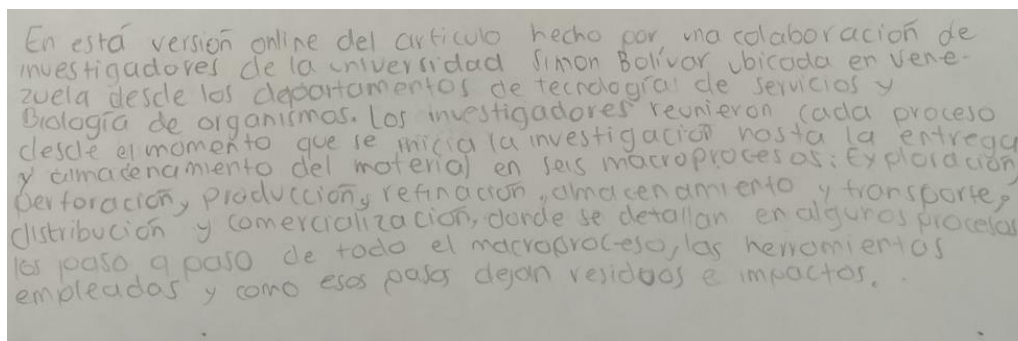 En está versión online del articulo hecho por una colaboración de
investigadores de la universidad Simon Bolívar ubicada en Vene-
zuela desde los departamentos de tecnología de servicios y
Biología de organismos. Los investigadores reunieron cada proceso
desde el momento que se inicia la investigación hasta la entrega
y almacenamiento del material en seis macroprocesos: Exploración,
perforación, producción, refinación, almacenamiento y transporte,
distribución y comercialización, donde se detallan en algunos procesos
los paso a paso de todo el macroproceso, las herramientas
empleadas y como esos pasos dejan residuos e impactos.